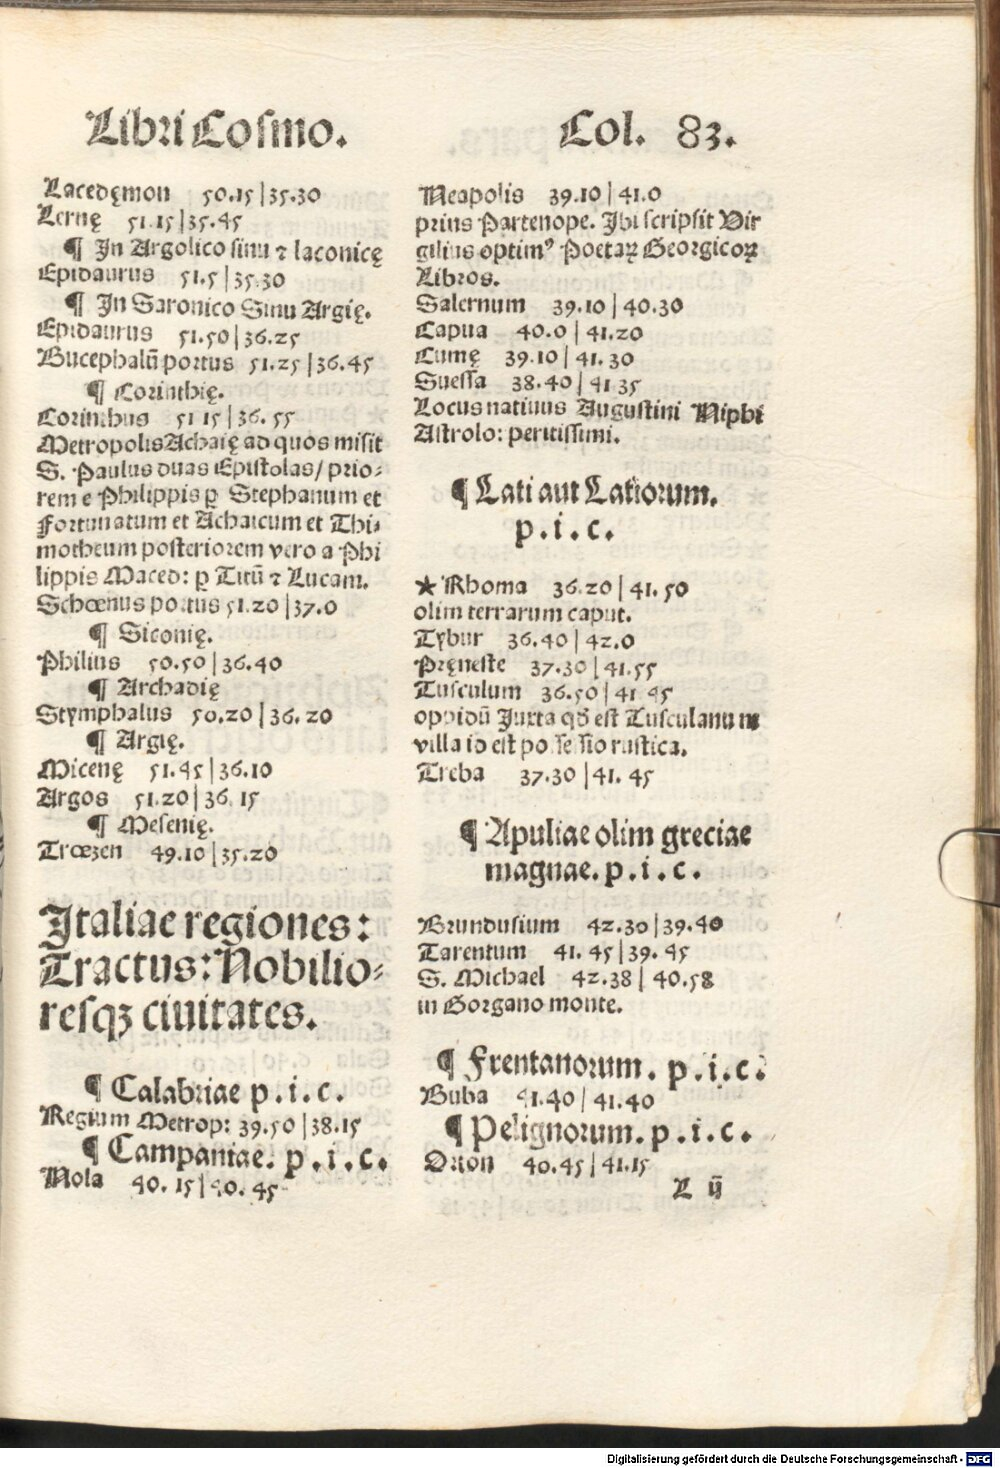 Libri Cosmo.
Col. 83.
Lacedęmon 50.15|35.30
Lernę 51.15|35.45
¶ In Argolico sinu ⁊ laconicę
Epidaurus 51.5|35.30
¶ In Saronico Sinu Argię.
Epidaurus 51.50|36.25
Bucephalū portus 51.25|36.45
¶ Corinthię.
Corinthus 51 15|36.55
Metropolis Achaię ad quos misit
S. Paulus duas Epistolas/ prio⸗
rem e Philippis ꝑ Stephanum et
Fortunatum et Achaicum et Thi⸗
motheum posteriorem vero a Phi
lippis Maced: ꝑ Titū ⁊ Lucam.
Schœnus portus 51.20|37.0
¶ Siconię.
Philius 50.50|36.40
¶ Archadię
Stymphalus 50.20|36.20
¶ Argię.
Micenę 51.45|36.10
Argos 51.20|36.15
¶ Mesenię.
Trœzen 49.10|35.20
Italiae regiones:
Tractus: Nobilio⸗
resqꝫ ciuitates.
¶ Calabriae p.i.c.
Regium Metrop: 39.50|38.15
¶ Campaniae. p.i.c.
Nola 40.15|40.45
Neapolis 39.10|41.0
prius Partenope. Ibi scripsit Vir
gilius optimꝰ Poetaꝝ Georgicoꝝ
Libros.
Salernum 39.10|40.30
Capua 40.0|41.20
Cumę 39.10|41.30
Suessa 38.40|41 35
Locus natiuus Augustini Niphi
Astrolo: peritissimi.
¶ Lati aut Latiorum.
p.i.c.
★ Rhoma 36.20|41.50
olim terrarum caput.
Tybur 36.40|42.0
Pręneste 37.30|41.55
Tusculum 36.50|41 45
oppidū Juxta qđ est Tusculanum
villa id est possessio rustica.
Treba 37.30|41.45
¶ Apuliae olim greciae
magnae. p.i.c.
Brundusium 42.30|39.40
Tarentum 41.45|39.45
S. Michael 42.38|40.58
in Gorgano monte.
¶ Frentanorum. p.i.c.
Buba 41.40|41.40
¶ Pelignorum. p.i.c.
Orton 40.45|41.15
L ij
Digitalisierung gefördert durch die Deutsche Forschungsgemeinschaft - DFG